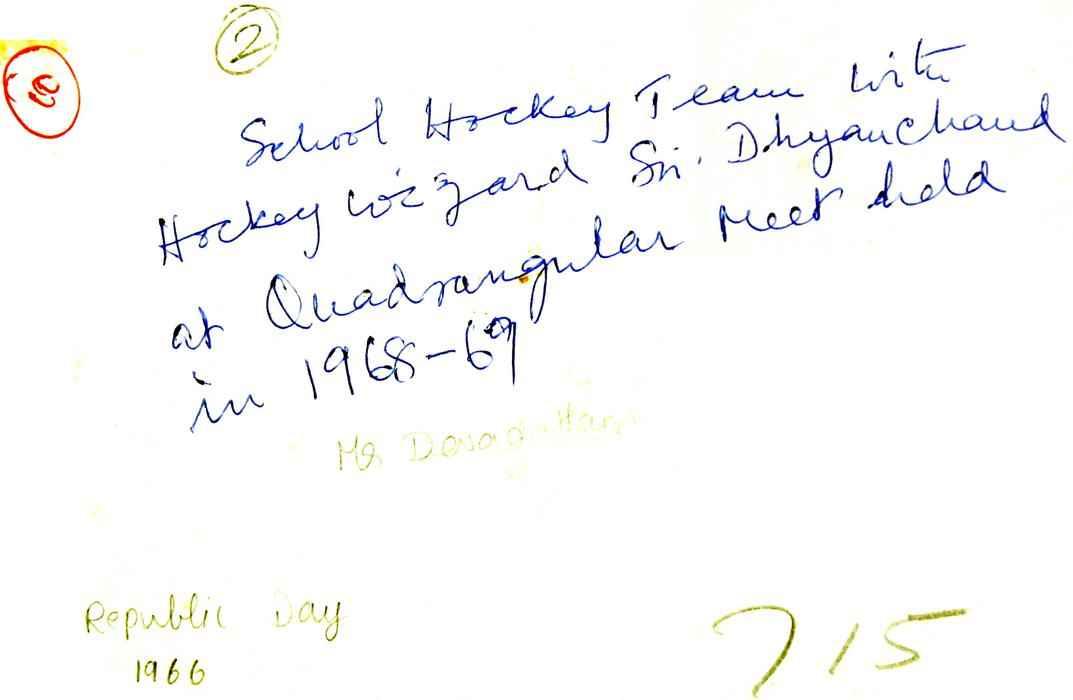 2
School Hockey Team with
Hockey wizzard Sri. Dhyanchand
at Quadrangular Meet held
in 1968-69
Mr
Republic Day
1966
715